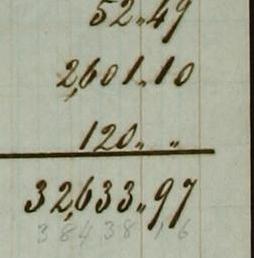 52.,49
2,601.,10
120.,  .,
32,633.,97
38438 16